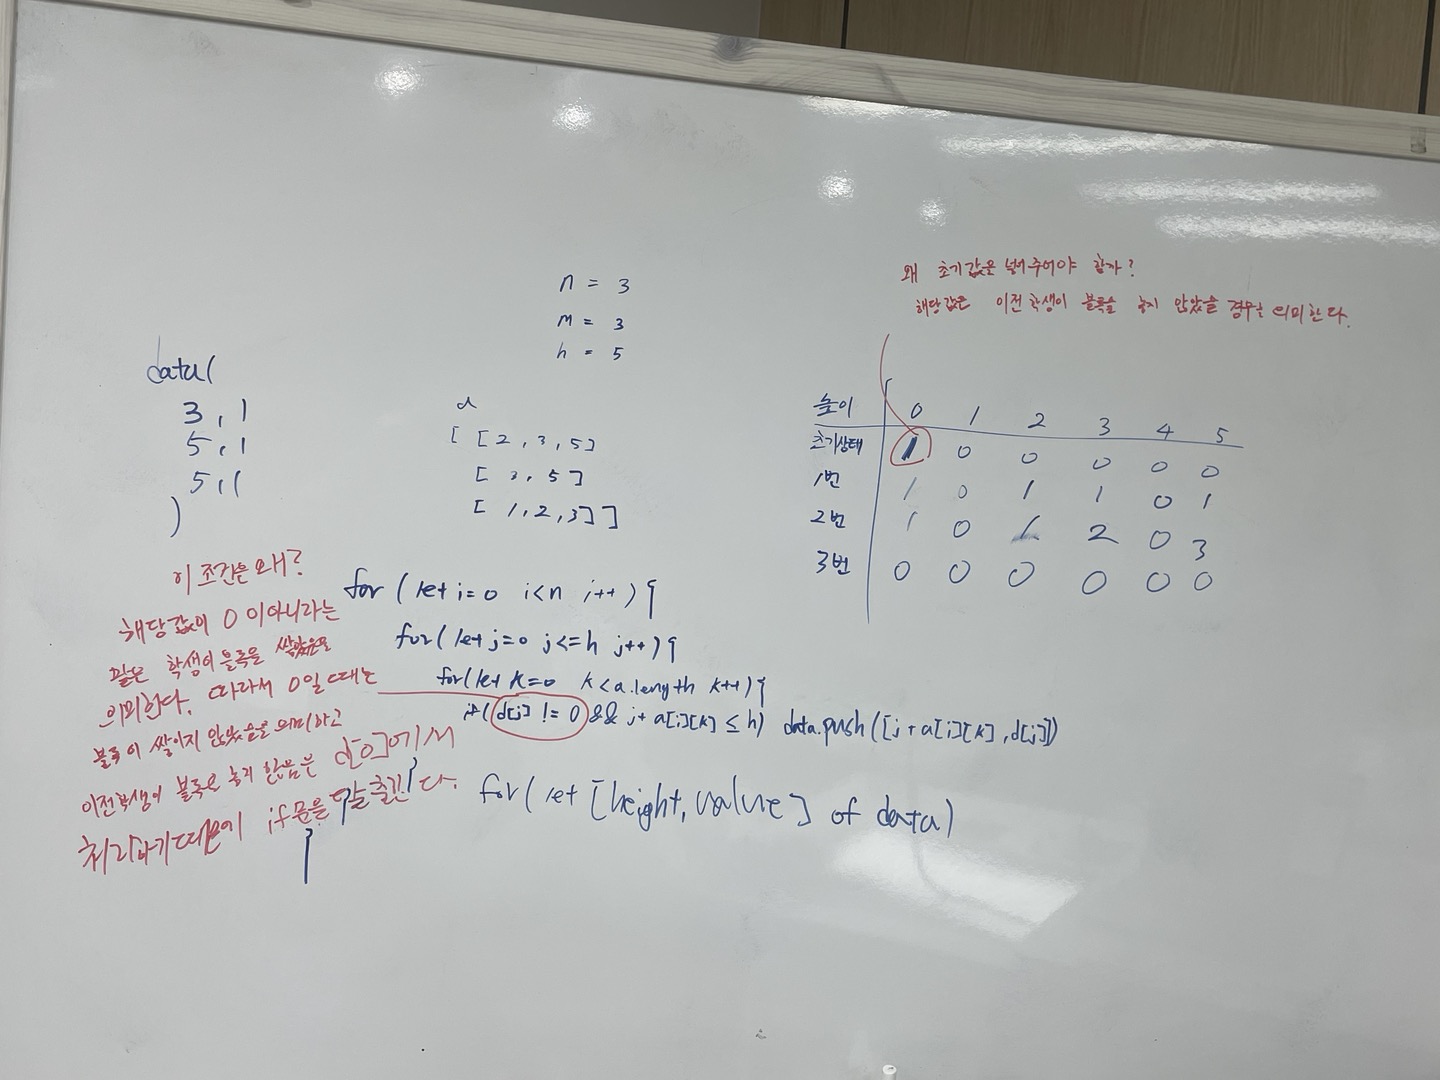 n = 3
m = 3
h = 5
왜 초기값을 넣어주어야 할까?
해당값은 이전 학생이 블록을 놓지 않았을 경우를 의미한다.
data(
3,1
5,1
5,1
)
d
[ [2,3,5]
[ 3,5]
[ 1,2,3] ]
높이 0 1 2 3 4 5
초기상태 1 0 0 0 0 0
1번 1 0 1 1 0 1
2번 1 0 1 2 0 3
3번 0 0 0 0 0 0
이 조건은 왜?
해당값이 0이 아니라는
말은 학생이 블록을 쌓았음을
의미한다. 따라서 0일 때는
블록이 쌓이지 않았음을 의미하고
이전학생이 블록을 놓지 않음은 d[0]에서
처리하기때문에 if문을 탈출한다.
for ( let i=0 i<n i++ ) {
for( let j=0 j<=h j++ ) {
for(let k=0 k<a.length k++){
if( d[j] != 0 && j+a[i][k] ≤ h) data.push([j+a[i][k], d[j]])
}
}
for( let [height, value] of data)
}